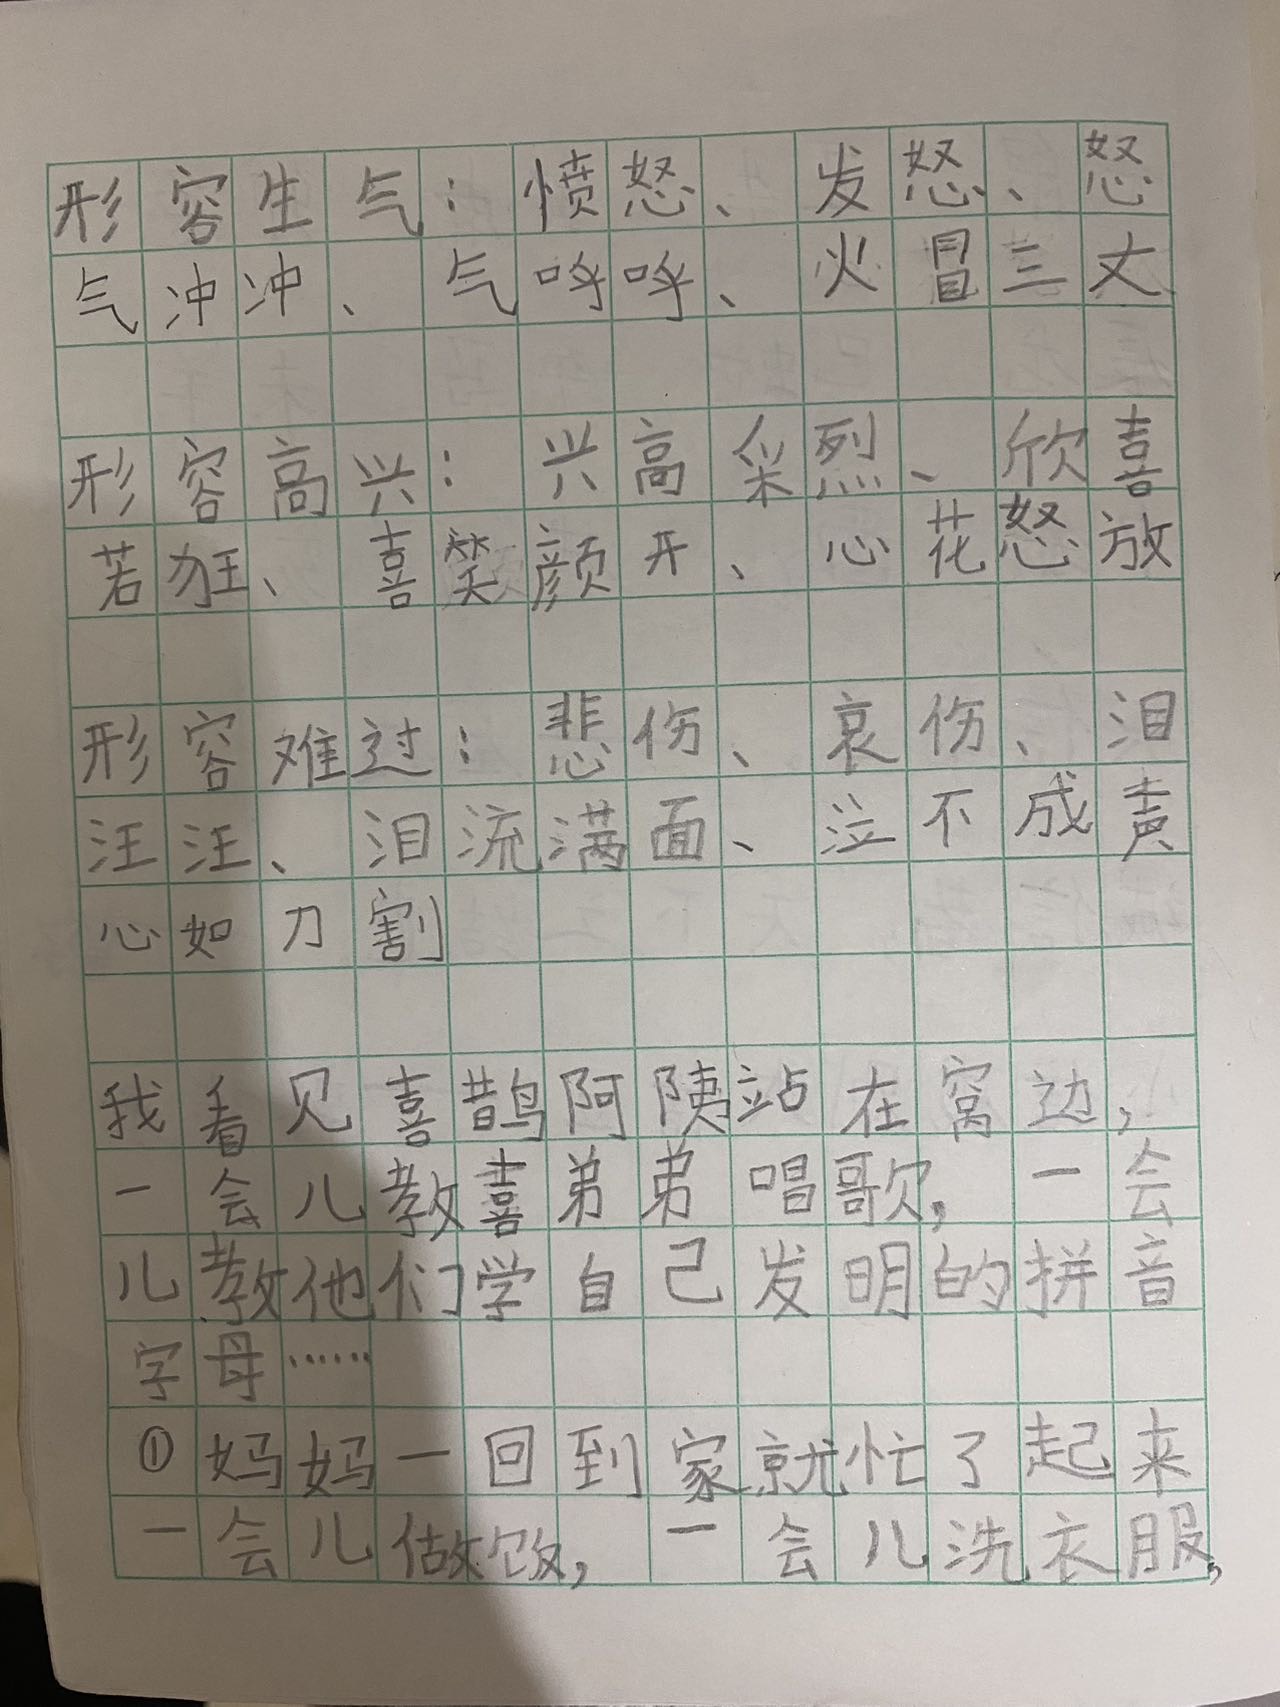 形容生气：愤怒、发怒、怒
气冲冲、气呼呼、火冒三丈
形容高兴：兴高采烈、欣喜
若狂、喜笑颜开、心花怒放
形容难过：悲伤、哀伤、泪
汪汪、泪流满面、泣不成声
心如刀割
我看见喜鹊阿姨站在窝边，
一会儿教喜弟弟唱歌，一会
儿教他们学自己发明的拼音
字母……
①妈妈一回到家就忙了起来
一会儿做饭，一会儿洗衣服，